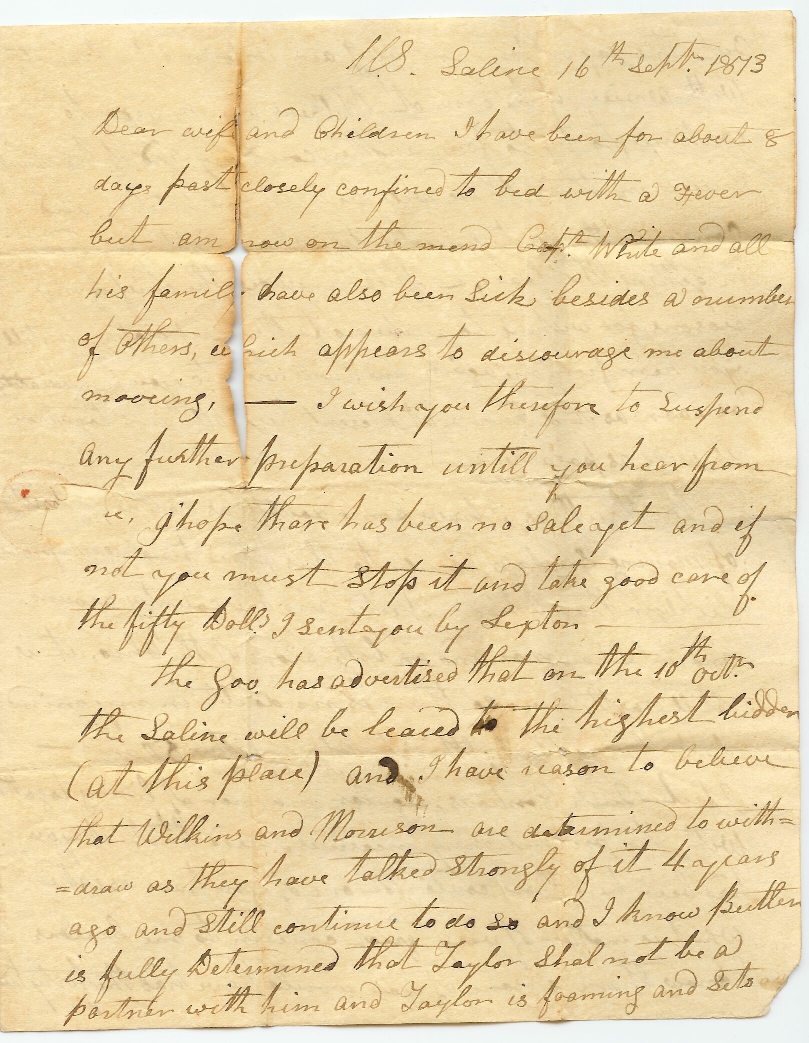 U.S. Saline 16th Sept. 1813
Dear wife and Children I have been for about 8
days past closely confined to bed with a Fever
but am now on the mend Capt. White and all
his family have also been Sick besides a number
of Others, which appears to discourage me about
mooving, — I wish you therefore to Suspend
any further preparation untill you hear from
I hope thare has been no Sale yet and if
not you must Stop it and take good care of
the fifty Dolls I sent you by Sexton —
the Gov. has advertised that on the 10th Octr.
the Saline will be leaced to the highest bidder
(at this place) and I have reason to believe
that Wilkins and Morrison are determined to with=
=draw as they have talked Strongly of it 4 years
ago and Still continue to do so and I know Butler
is fully Determined that Taylor Shal not be a
partner with him and Taylor is foaming and Sets